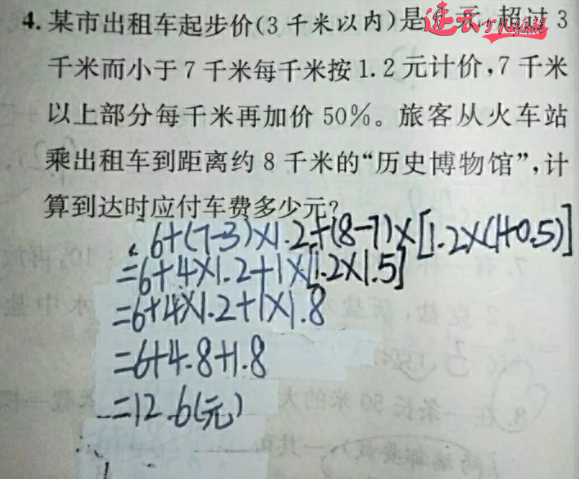 4. 某市出租车起步价(3千米以内)是6元,超过3
千米而小于7千米每千米按1.2元计价,7千米
以上部分每千米再加价50%。旅客从火车站
乘出租车到距离约8千米的“历史博物馆”,计
算到达时应付车费多少元?
6+(7-3)×1.2+(8-7)×[1.2×(1+0.5)]
=6+4×1.2+1×[1.2×1.5]
=6+4×1.2+1×1.8
=6+4.8+1.8
=12.6(元)